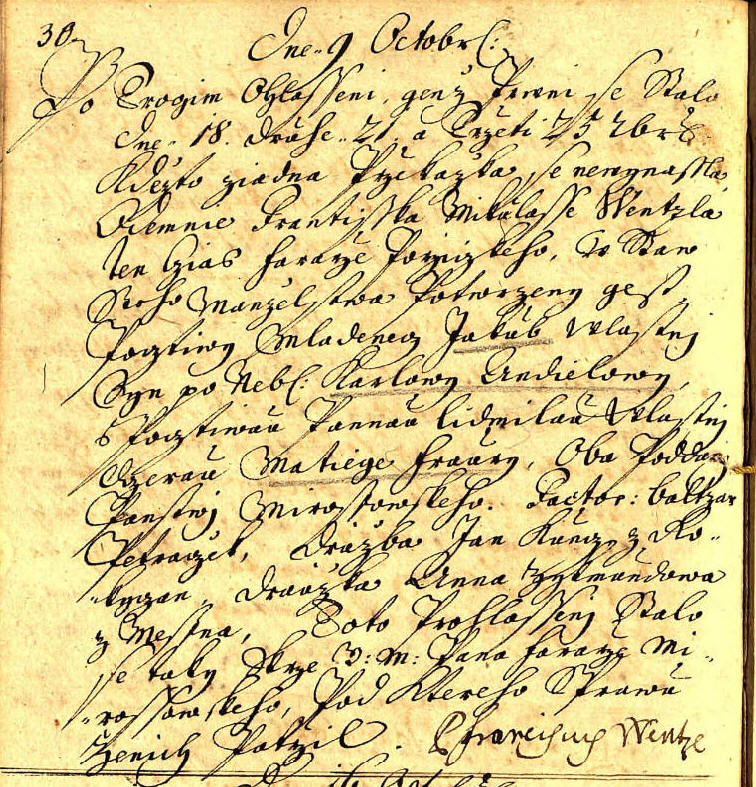 30. Dne 9 Octobr:
Po Trogim Ohlasseni, genz Prwni se Stalo
dne 18. druhe 21. a Trzeti 25 7bris
Kdezto ziadna Przekazka se newynassla,
Odemnie Frantisska Mikulasse Wentzla
ten czias faraze Porziczskeho, w Staw
Sw°ho Manzelstwa Potwrzeny gest
Pocztiwy Mladenecz Jakub Wlastnj
Syn po Nebl: Karlowy Andielowy,
s Pocztiwau Pannau Lidmilau Wlastnj
dczerau Matiege Fraury, Oba Poddanj
Panstwj Mirossowskeho. Factor: Baltzar
Petraczek, Druzba Jan Kuncz z Ro-
-kyczan, Druzka Anna Zykmundowa
z Mesna, Toto Prohlassenj Stalo
se taky Skrze V: M: Pana Faraze Mi-
-rossowskeho, Pod Ktereho Sprawu
Zenich Patrzil. P Franciscus Wentze